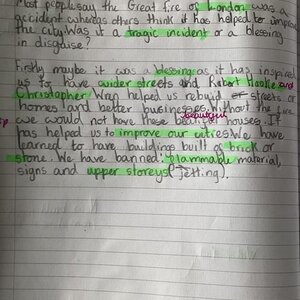 Most people say the Great fire of London was a
accident whereas others think it has helped to improve
the city. Was it a tragic incident or a blessing
in disguise?
Firstly maybe it was a blessing as it has inspired
us to have wider streets and Robert Hooke and
Christopher Wren helped us rebuild or streets or
homes and better businesses. Without the fire
we would not have these beautiful houses. It
has helped us to improve our cities We have
learned to have buildings built of brick or
stone. We have banned flammable material,
signs and upper storeys (Jetting).